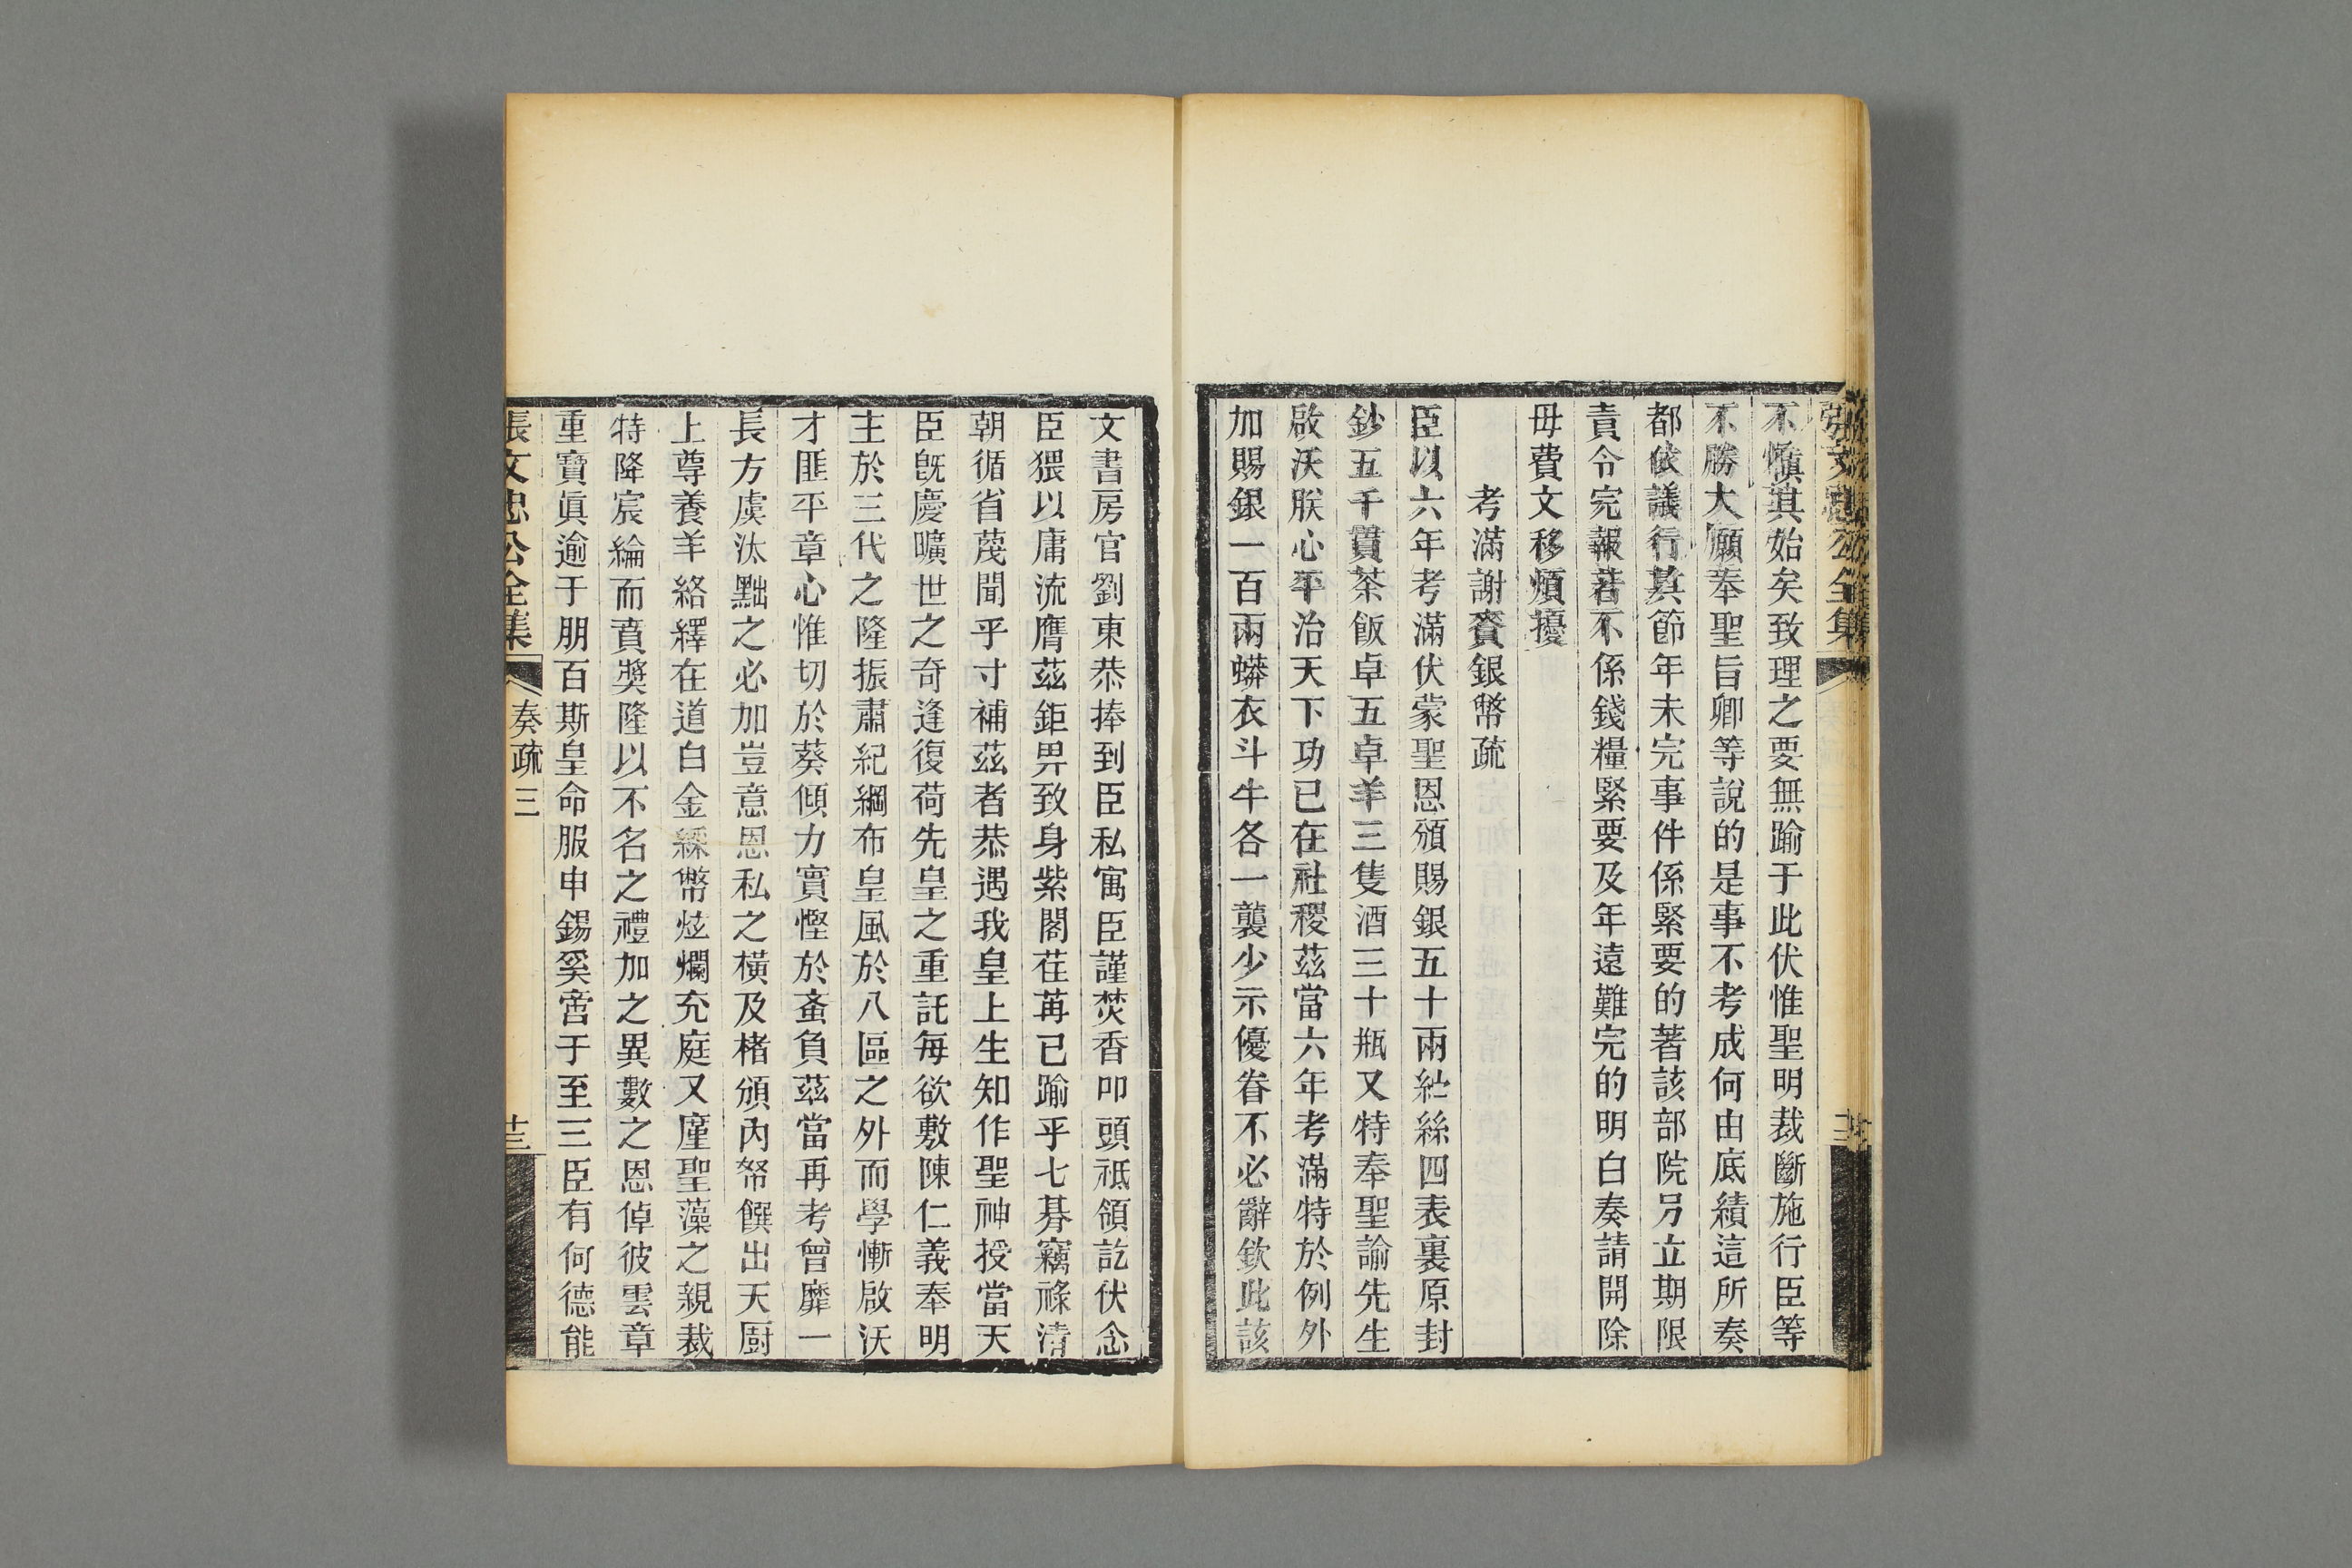 張文忠公全集
不愼其始矣致理之要無踰于此伏惟聖明裁斷施行臣等
不勝大願奉聖旨卿等說的是事不考成何由底績這所奏
都依議行其節年未完事件係緊要的著該部院另立期限
責令完報若不係錢糧緊要及年遠難完的明白奏請開除
毋費文移煩擾
考滿謝賚銀幣疏
臣以六年考滿伏蒙聖恩頒賜銀五十兩紵絲四表裏原封
鈔五千貫茶飯卓五卓羊三隻酒三十瓶又特奉聖諭先生
啟沃朕心平治天下功已在社稷茲當六年考滿特於例外
加賜銀一百兩蟒衣斗牛各一襲少示優眷不必辭欽此該
文書房官劉東恭捧到臣私寓臣謹焚香叩頭祗領訖伏念
臣猥以庸流膺茲鉅畀致身紫閣荏苒已踰乎七朞竊祿清
朝循省蔑聞乎寸補茲者恭遇我皇上生知作聖神授當天
臣旣慶曠世之奇逢復荷先皇之重託每欲敷陳仁義奉明
主於三代之隆振肅紀綱布皇風於八區之外而學慚啟沃
才匪平章心惟切於葵傾力實慳於蚉負茲當再考曾靡一
長方虞汰黜之必加豈意恩私之橫及楮頒內帑饌出天廚
上尊養羊絡繹在道白金綵幣炫爛充庭又廑聖藻之親裁
特降宸綸而賁獎隆以不名之禮加之異數之恩倬彼雲章
重寶眞逾于朋百斯皇命服申錫奚啻于至三臣有何德能
張文忠公全集
奏疏三
十三